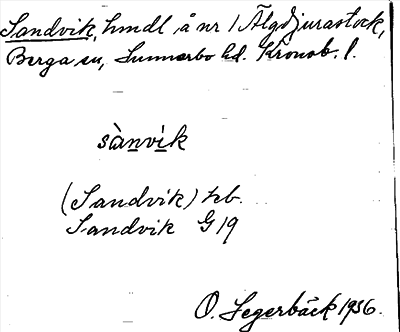 Sandvik, hmdl å nr 1 Älgdjurastock,
Berga sn, Sunnerbo hd. Kronob. l.
sànvik
(Sandvik) hb.
Sandvik G19
O. Segerbäck 1936.